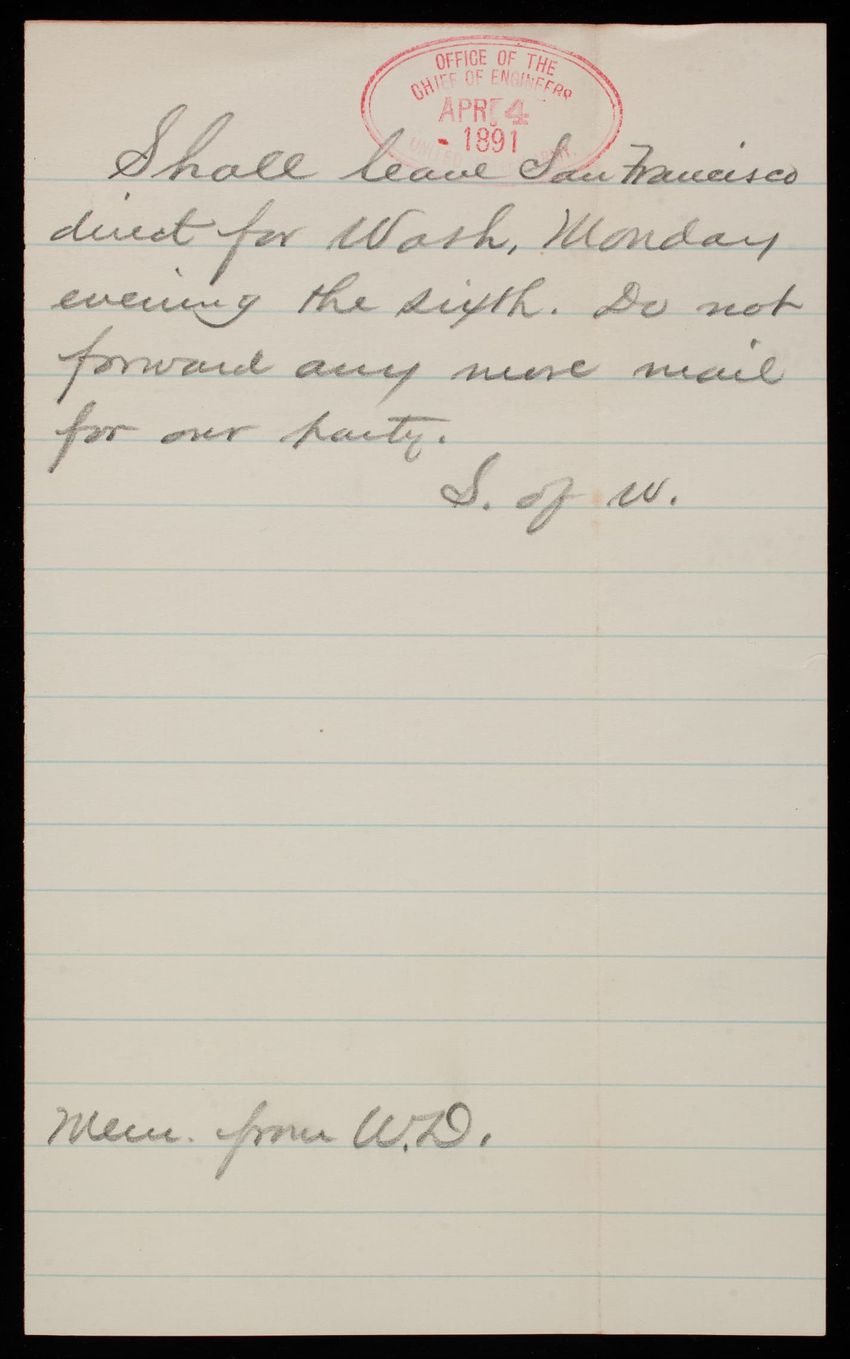 OFFICE OF THE
CHIEF OF ENGINEERS
APR 4
1891
UNITED
Shall leave San Francisco
direct for Wash, Monday
evening the sixth. Do not
forward any more mail
for our party.
S. of W.
Mem. from W.D.